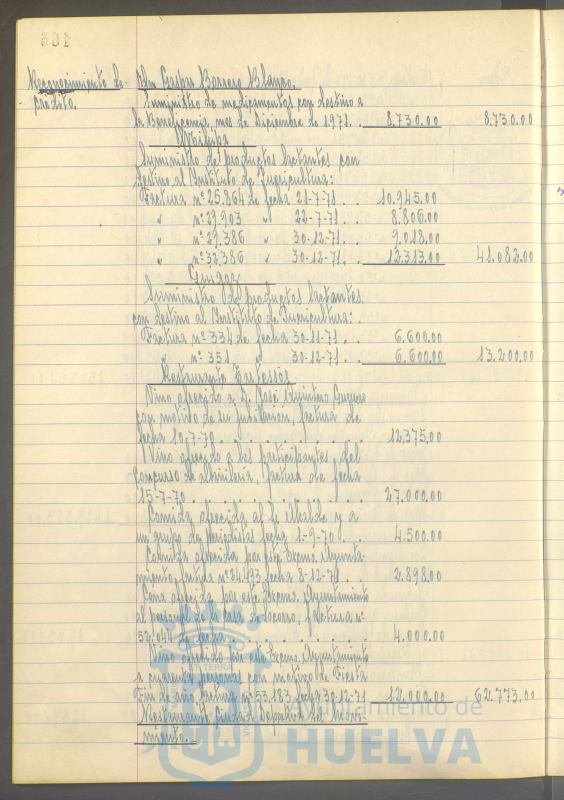 Reconocimiento de
crédito.
Dn Gaspar Borrero Blanco.
Suministro de medicamentos con destino a
la Beneficencia, mes de diciembre de 1971. 8.730.00 8.730.00
Suministro de productos lactantes con
destino al Instituto de Puericultura:
Factura nº 25.864 de fecha 21-7-71 . . 10.945.00
" nº 29.903 " 22-7-71. . 8.806.00
" nº 29.386 " 30-12-71. . 9.018.00
" nº 32.386 " 30-12-71. . 12.313.00 41.082.00
Guigoz
Suministro de productos lactantes
con destino al Instituto de Puericultura: .
Factura nº 334 de fecha 30-11-71. . 6.600.00
" nº 351 " 30-12-71. . 6.600.00 13.200.00
Restaurante Tartessos
Vino ofrecido a D. José Quintero
con motivo de su jubilación, factura de
fecha 10-7-70 . . . . . . . . 12.375.00
Vino ofrecido a los participantes del
Concurso de albañilería, factura de fecha
15-7-70 . . . . . . . . 27.000.00
Comida ofrecida al Sr. Alcalde y a
un grupo de periodistas fecha 1-9-70 . . 4.500.00
Comida ofrecida por este Excmo. Ayunta-
miento, factura nº 24.493 fecha 8-12-70 . . 2.898.00
Cena ofrecida por este Excmo. Ayuntamiento
al personal de la casa de socorro, factura nº
52.044 de fecha . . . . . . 4.000.00
Vino ofrecido por este Excmo. Ayuntamiento
a personal con motivo de Fiesta
Fin de año, factura nº 53.183 fecha 30-12-71 12.000.00 62.773.00
Restaurante Ciudad Deportiva del Movi-
miento. -
Ayuntamiento de
HUELVA